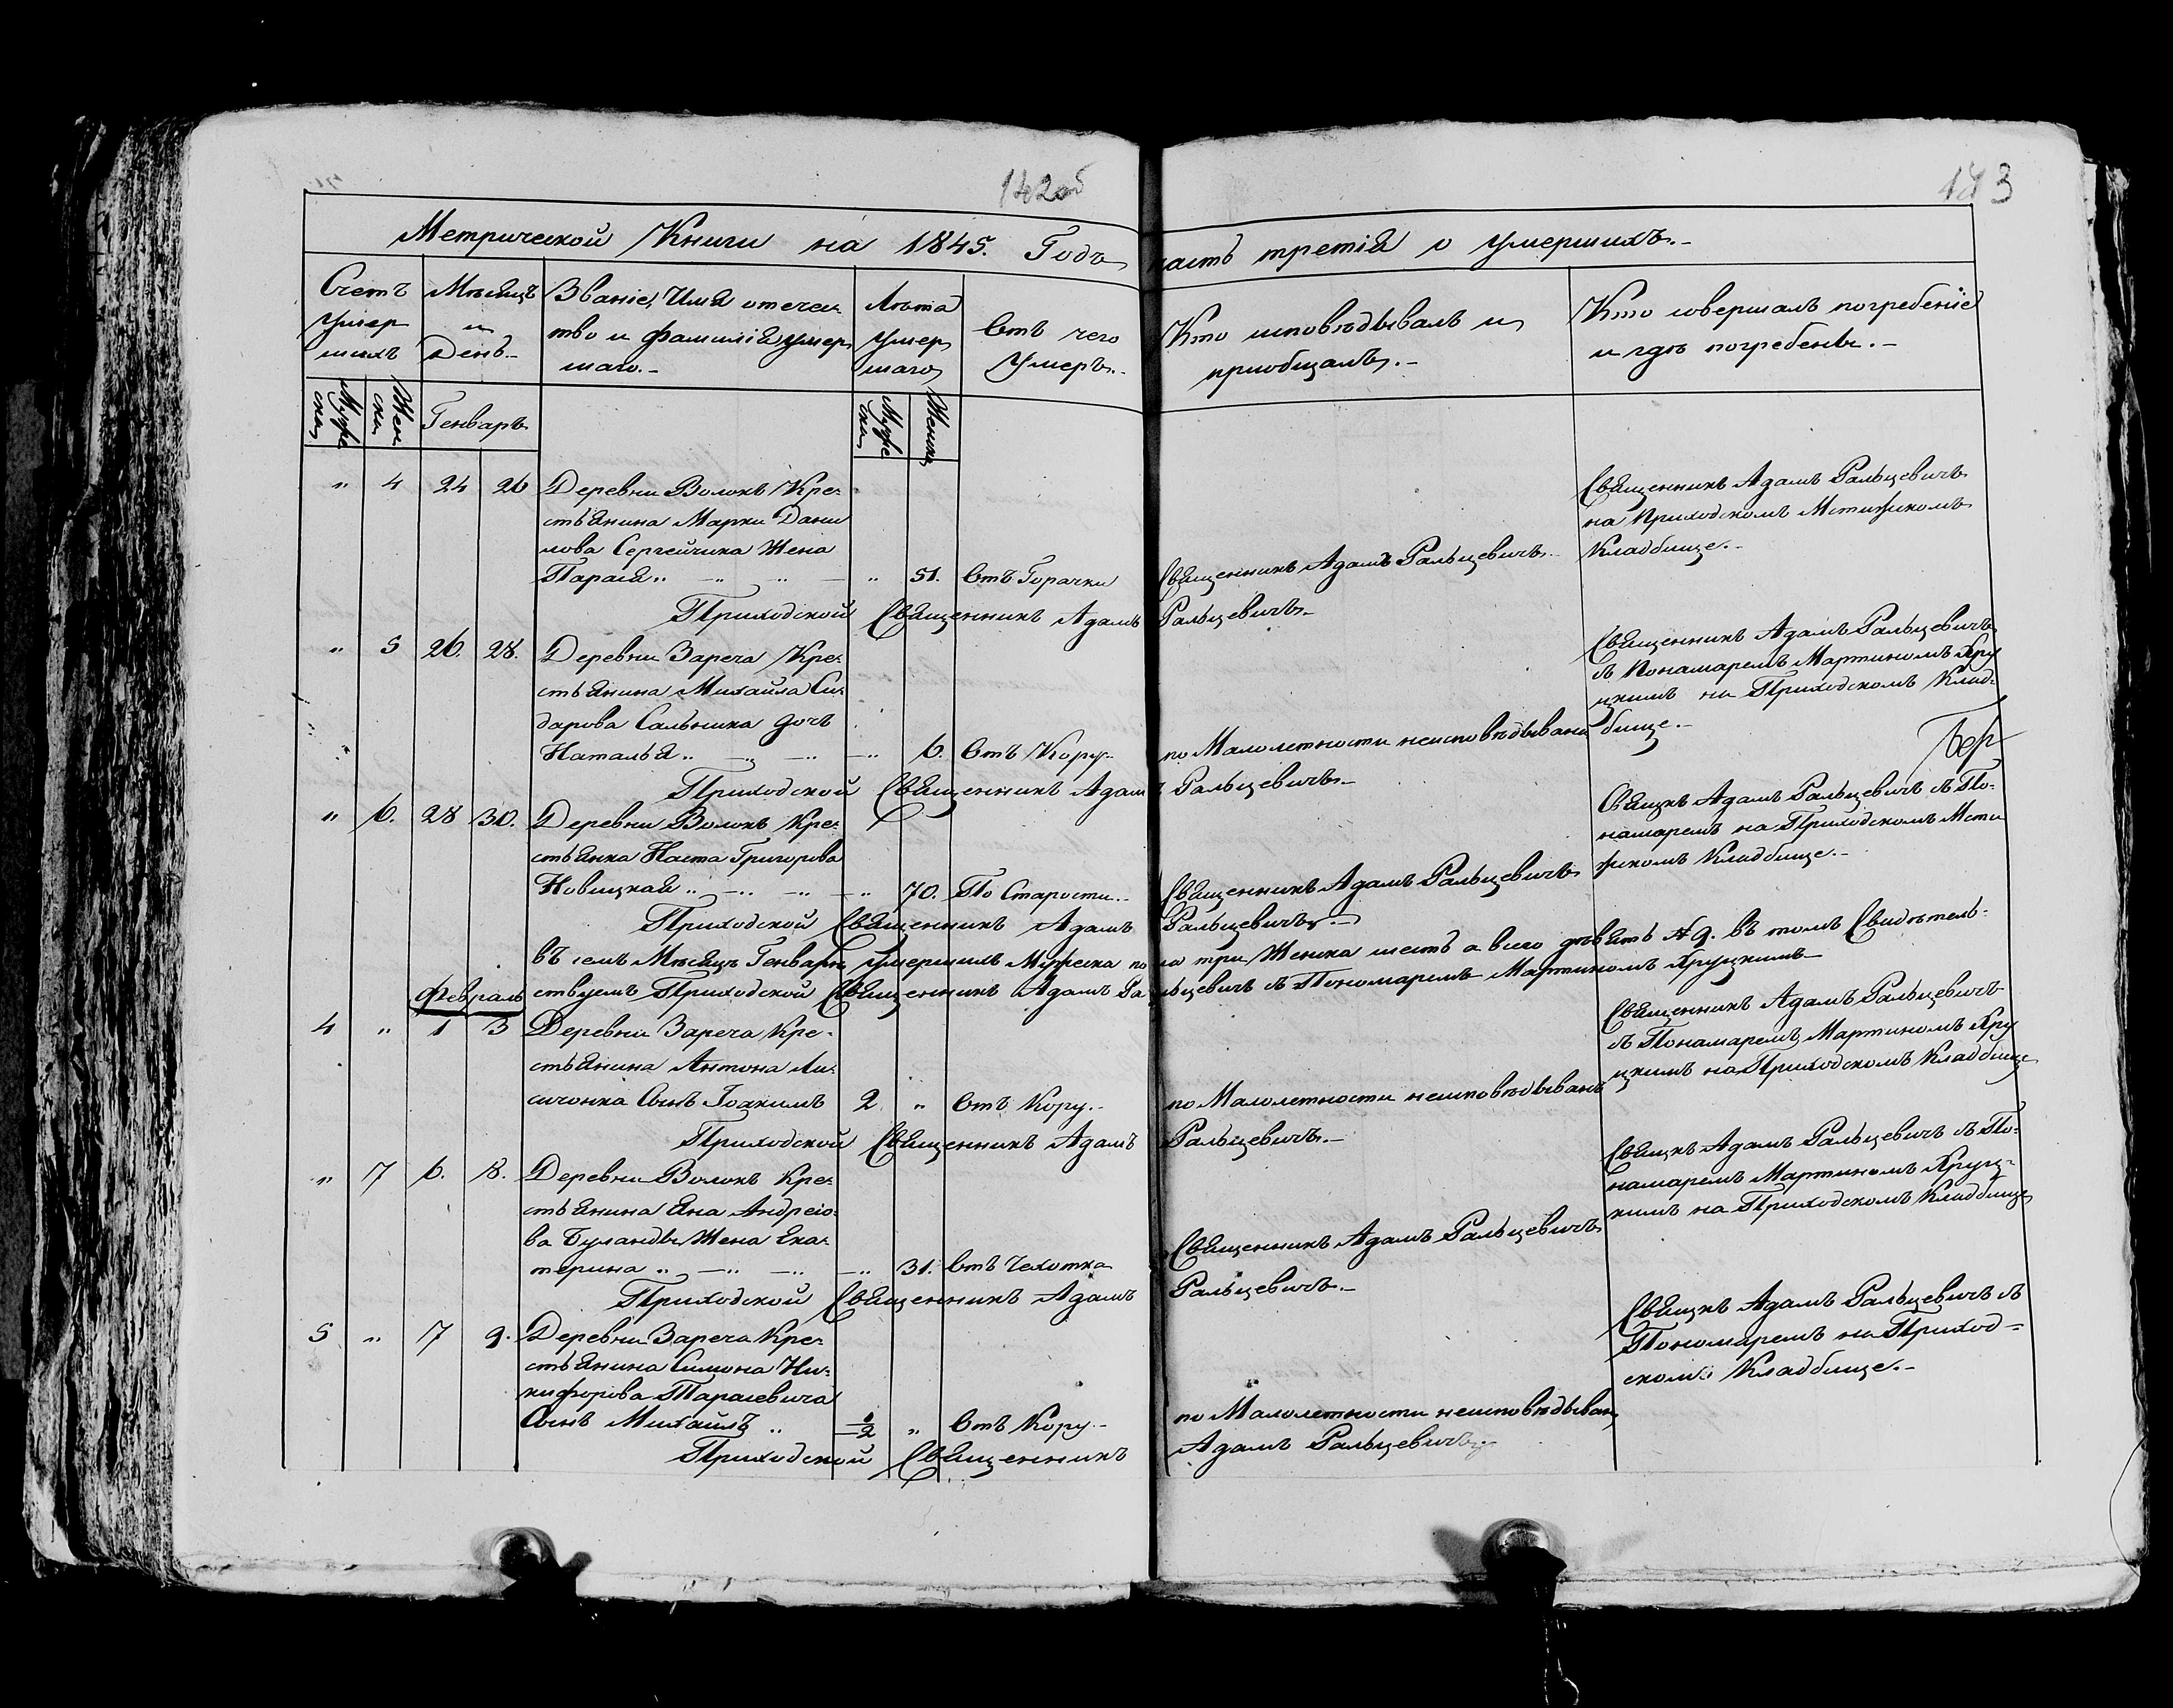 142об
143
Метрической Книги на 1845. Годъ часть третія о умершихъ.-
Счетъ умер шихъ
Мѣсяцъ и День.-
Званіе, Имя отечес тво и фамилія умер шаго.-
Лѣта умер шаго
Отъ чего умеръ.-
Кто исповѣдывалъ и приобщалъ.-
Кто совершалъ погребеніе и гдѣ погребены.-
Мужеска
Женска
Генварь
Мужеска
Женска
" 4 24 26 Деревни Волокъ Кре-
стьянина Марки Дани
лова Сергейчика Жена
Парасія " 51. Отъ Горачки
Священникъ Адамъ Ральцевичъ.-
Священникъ Адамъ Ральцевичъ
на Приходскомъ Мстижскомъ
Кладбище.-
Приходской Священникъ Адамъ Ральцевичъ.-
" 5 26. 28. Деревни Зареча Кре-
стьянина Михайла Си-
дарова Сальника дочь
Наталья " 6. Отъ Кору.-
по Малолетности неисповѣдывана
Священникъ Адамъ Ральцевичъ
съ Понамаремъ Мартиномъ Кру
цкимъ на Приходскомъ Клад-
бище.-
Приходской Священникъ Адамъ Ральцевичъ.-
" 6. 28 30. Деревни Волокъ Кре-
стьянка Наста Григорова
Новицкая " 70. По Старости.-
Священникъ Адамъ Ральцевичъ
Свящкъ Адамъ Ральцевичъ съ По-
намаремъ на Приходскомъ Мсти
жскомъ Кладбище.-
Приходской Священникъ Адамъ Ральцевичъ.-
въ семъ Мѣсяцѣ Генварѣ умершихъ Мужеска пола три Женска шесть а всего девять № 9. въ томъ Свидѣтель-
ствуемъ Приходской Священникъ Адамъ Ральцевичъ съ Пономаремъ Мартиномъ Круцкимъ
Февраль
4 " 1 3 Деревни Зареча Кре-
стьянина Антона Ли-
сичонка Сынъ Іоакимъ 2 " Отъ Кору.-
по Малолетности неисповѣдыванъ
Священникъ Адамъ Ральцевичъ
съ Понамаремъ Мартиномъ Кру
цкимъ на Приходскомъ Кладбище
Приходской Священникъ Адамъ Ральцевичъ.-
" 7 6. 8. Деревни Волокъ Кре-
стьянина Яна Андреіо-
ва Буланды Жена Ека-
терина " 31. Отъ Чахотка
Священникъ Адамъ Ральцевичъ
Свящкъ Адамъ Ральцевичъ съ По-
намаремъ Мартиномъ Круц-
кимъ на Приходскомъ Кладбище
Приходской Священникъ Адамъ Ральцевичъ.-
5 " 7 9. Деревни Зареча Кре-
стьянина Симона Ни-
кифорова Тарасевича
Сынъ Михайлъ 1/2 " Отъ Кору.-
по Малолетности неисповѣдыван
Свящкъ Адамъ Ральцевичъ съ
Пономаремъ на Приход-
скомъ Кладбище.-
Приходской Священникъ Адамъ Ральцевичъ